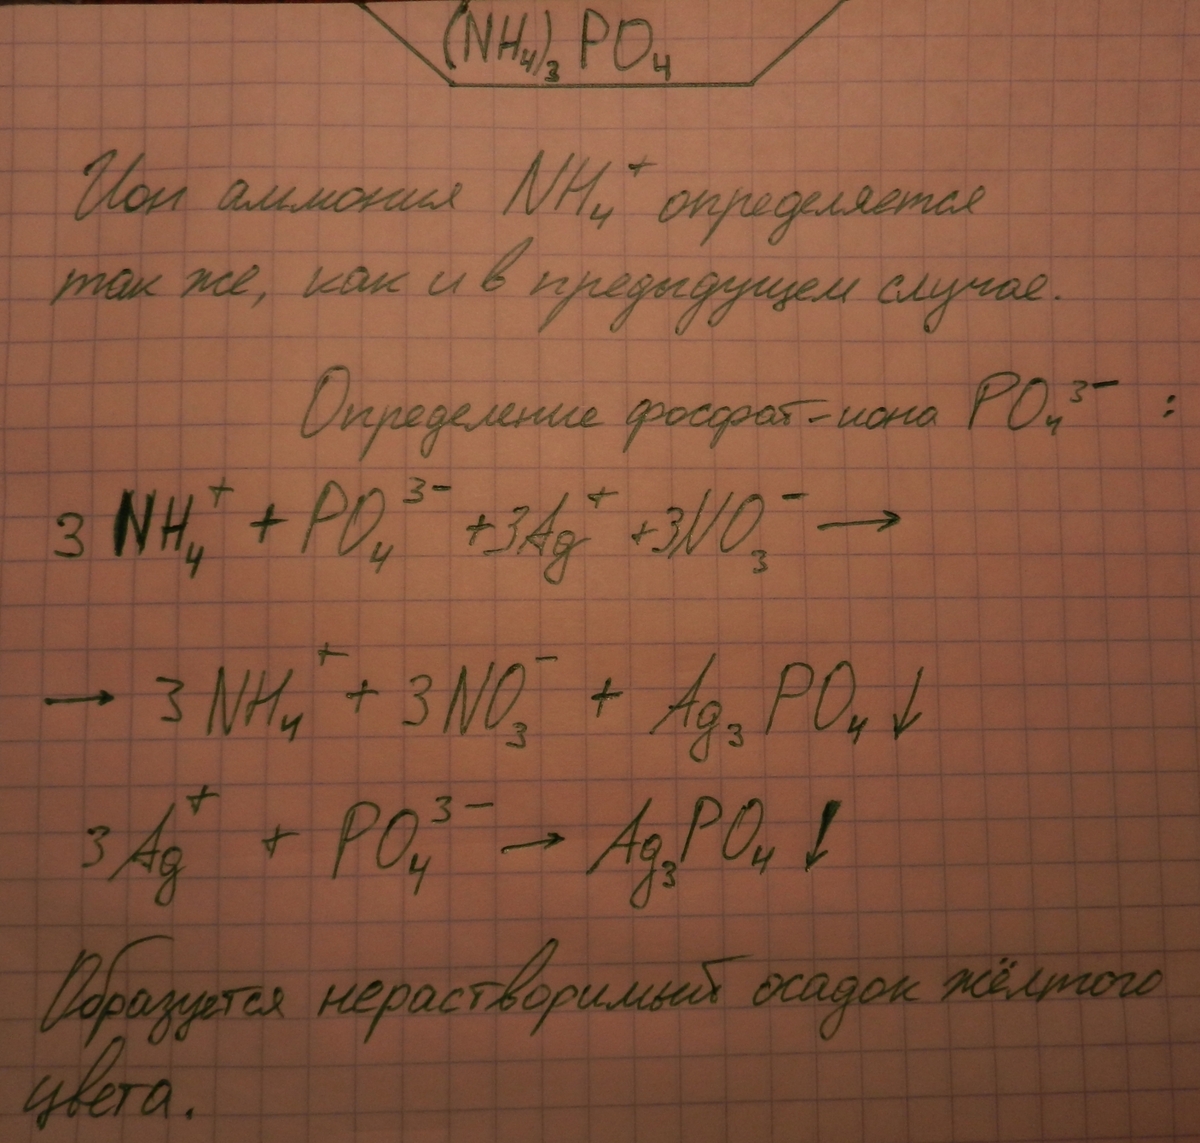 (NH₄)₃PO₄
Ион аммония NH₄⁺ определяется
так же, как и в предыдущем случае.
Определение фосфат-иона PO₄³⁻ :
3 NH₄⁺ + PO₄³⁻ + 3Ag⁺ + 3NO₃⁻ →
→ 3 NH₄⁺ + 3NO₃⁻ + Ag₃PO₄↓
3Ag⁺ + PO₄³⁻ → Ag₃PO₄↓
Образуется нерастворимый осадок жёлтого
цвета.